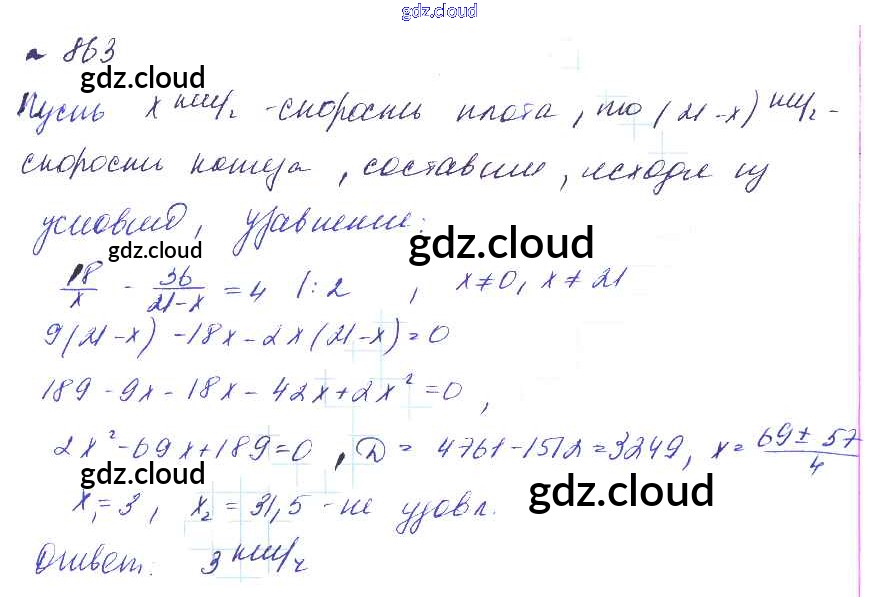 gdz.cloud
863
gdz.cloud
Пусть x км/ч - скорость плота, то (21-x) км/ч -
скорость катера, составим, исходя из
условию, уравнение:
gdz.cloud
gdz.cloud
18/x - 36/(21-x) = 4 |:2 , x≠0, x≠21
9(21-x) - 18x - 2x(21-x) = 0
189 - 9x - 18x - 42x + 2x² = 0,
2x² - 69x + 189 = 0, D = 4761 - 1512 = 3249, x = (69 ± 57)/4
gdz.cloud
gdz.cloud
x₁ = 3, x₂ = 31,5 - не удовл.
Ответ: 3 км/ч